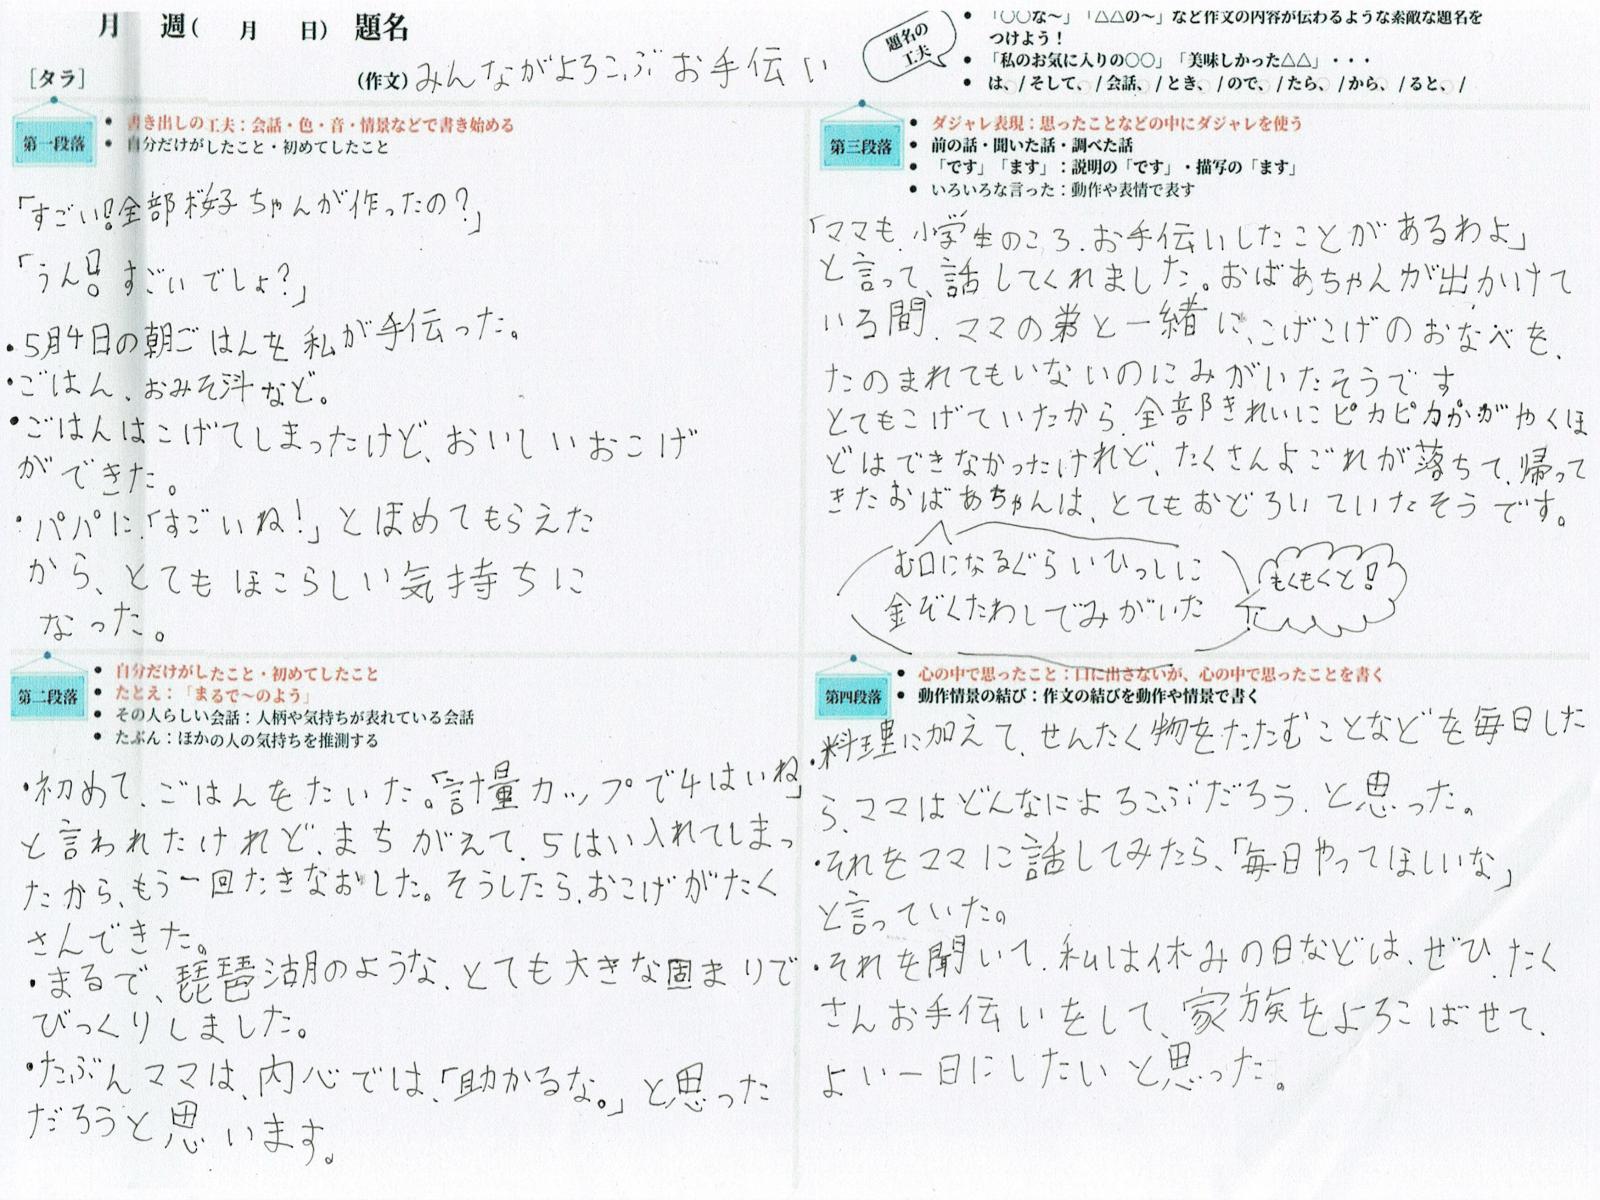 月 週( 月 日) 題名
[タラ] (作文)みんながよろこぶお手伝い
題名の
工夫
• 「○○な〜」「△△の〜」など作文の内容が伝わるような素敵な題名を
つけよう！
• 「私のお気に入りの○○」「美味しかった△△」・・・
• は、/ そして、/ 会話、/ とき、/ ので、/ たら、/ から、/ ると、/
第一段落
• 書き出しの工夫：会話・色・音・情景などで書き始める
• 自分だけがしたこと・初めてしたこと
「すごい!全部桜子ちゃんが作ったの？」
「うん!すごいでしょ？」
・5月4日の朝ごはんを私が手伝った。
・ごはん、おみそ汁など。
・ごはんはこげてしまったけど、おいしいおこげ
ができた。
・パパに「すごいね！」とほめてもらえた
から、とてもほこらしい気持ちに
なった。
第二段落
• 自分だけがしたこと・初めてしたこと
• たとえ：「まるで〜のよう」
• その人らしい会話：人柄や気持ちが表れている会話
• たぶん：ほかの人の気持ちを推測する
・初めて、ごはんをたいた。「計量カップで4はいね」
と言われたけれど、まちがえて、5はい入れてしまっ
たから、もう一回たきなおした。そうしたら、おこげがたく
さんできた。
・まるで、琵琶湖のような、とても大きな固まりで
びっくりしました。
・たぶんママは、内心では、「助かるな。」と思った
だろうと思います。
第三段落
• ダジャレ表現：思ったことなどの中にダジャレを使う
• 前の話・聞いた話・調べた話
• 「です」「ます」：説明の「です」・描写の「ます」
• いろいろな言った：動作や表情で表す
「ママも、小学生のころ、お手伝いしたことがあるわよ」
と言って、話してくれました。おばあちゃんが出かけて
いる間、ママの弟と一緒に、こげこげのおなべを、
たのまれてもいないのにみがいたそうです
とてもこげていたから、全部きれいにピカピカかがやくほ
どはできなかったけれど、たくさんよごれが落ちて、帰って
きたおばあちゃんは、とてもおどろいていたそうです。
む口になるぐらいひっしに
金ぞくたわしでみがいた
もくもくと！
第四段落
• 心の中で思ったこと：口に出さないが、心の中で思ったことを書く
• 動作情景の結び：作文の結びを動作や情景で書く
・料理に加えて、せんたく物をたたむことなどを毎日した
ら、ママはどんなによろこぶだろう、と思った。
・それをママに話してみたら、「毎日やってほしいな」
と言っていた。
・それを聞いて、私は休みの日などは、ぜひ、たく
さんお手伝いをして、家族をよろこばせて、
よい一日にしたいと思った。